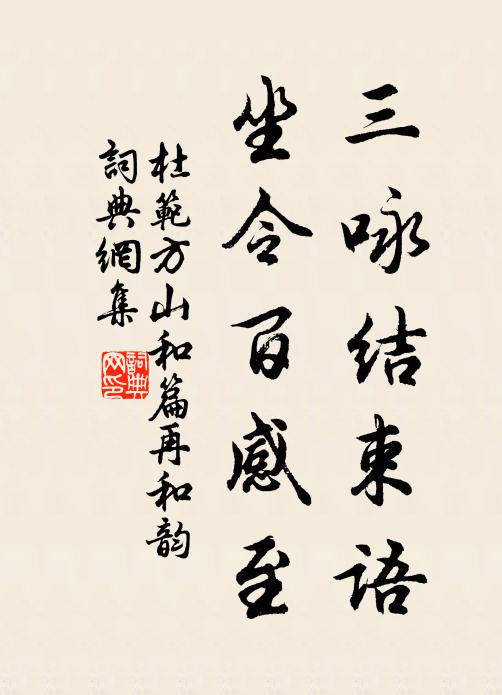 三咏结束語
坐令百感至
杜範方山和篇再和韵
詞典網集
詞典网印